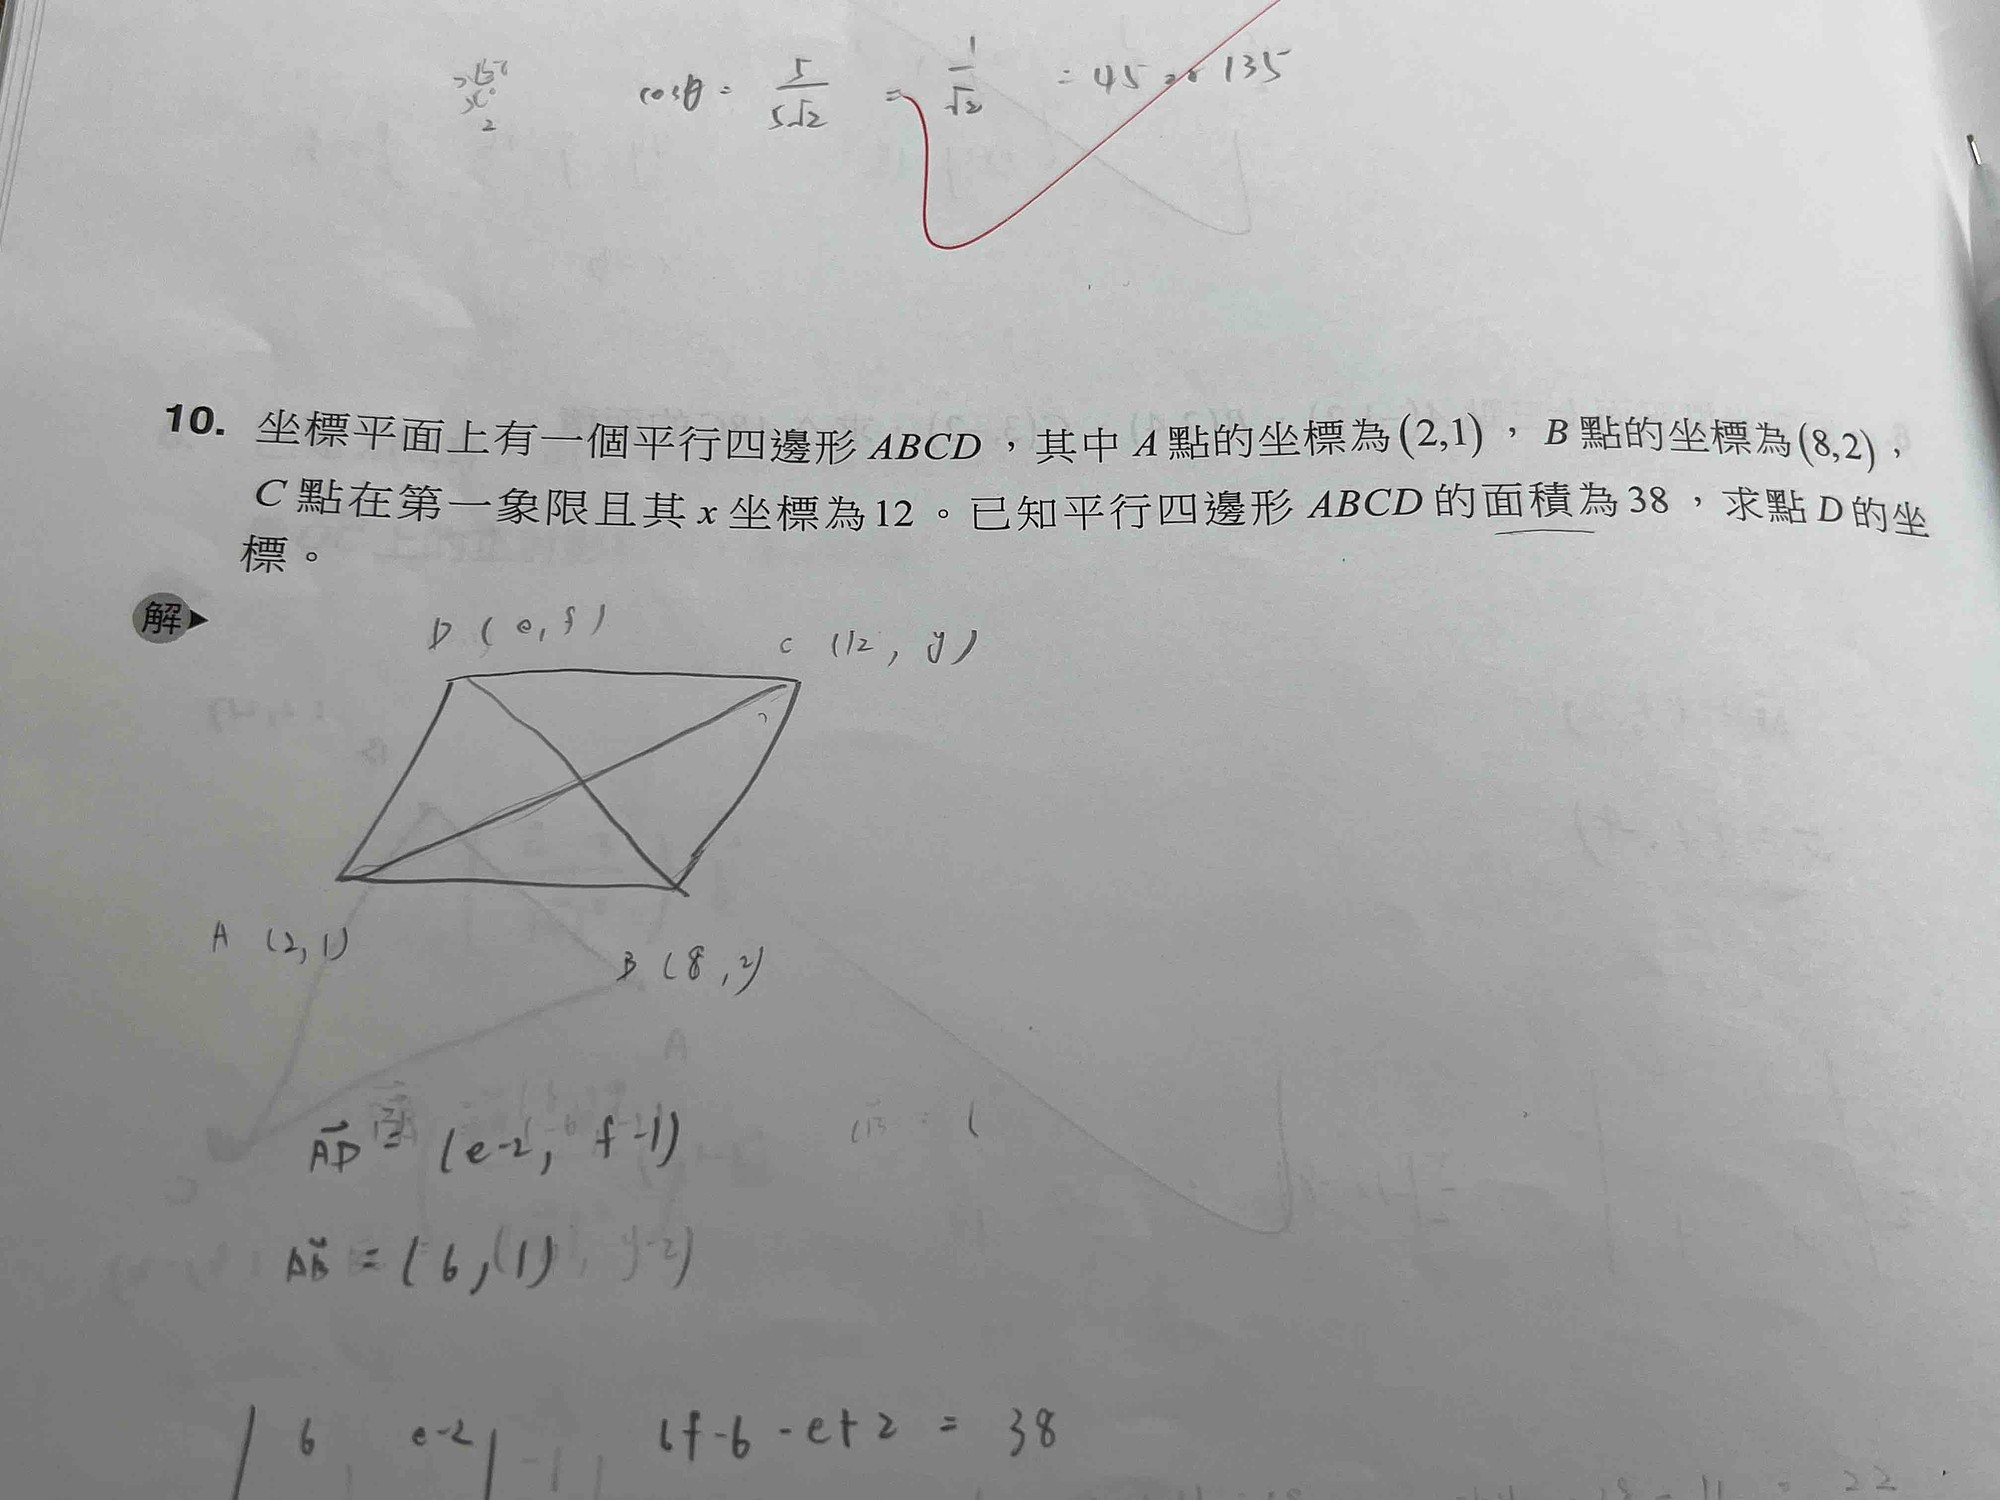 cosθ = 5/5√2 = 1/√2 = 45 or 135
10. 坐標平面上有一個平行四邊形 ABCD，其中 A 點的坐標為(2,1)，B 點的坐標為(8,2)，
C 點在第一象限且其 x 坐標為12。已知平行四邊形 ABCD 的面積為38，求點 D 的坐
標。
解
D (e, f)
C (12, y)
A (2, 1)
B (8, 2)
AD = (e-2, f-1)
AB = (6, 1)
| 6 e-2 | 6f-6-e+2 = 38